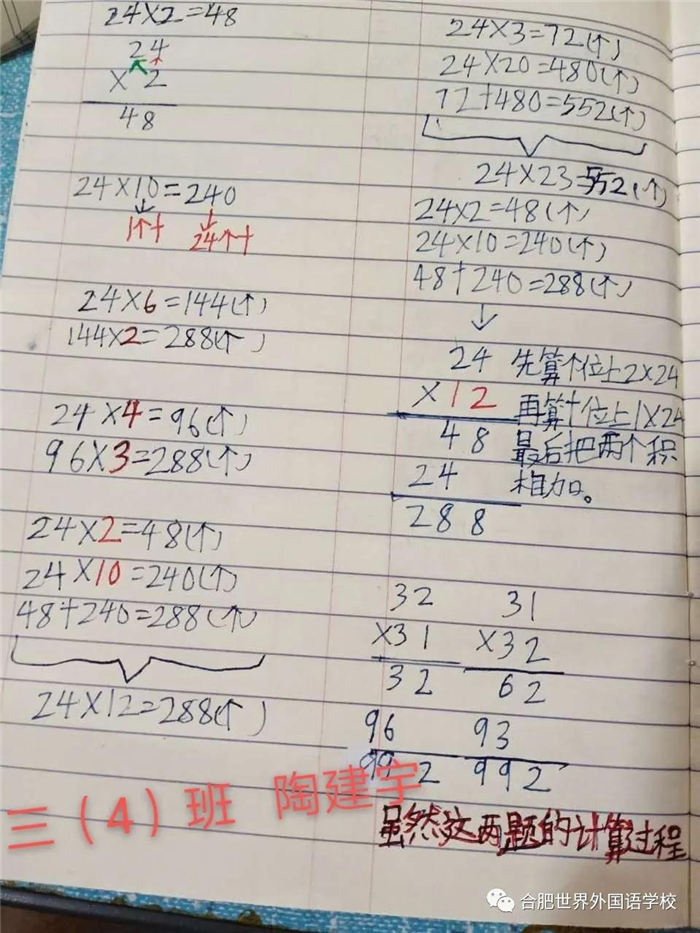 24×2=48
24
×2
48
24×10=240
1个十 24个十
24×6=144(个)
144×2=288(个)
24×4=96(个)
96×3=288(个)
24×2=48(个)
24×10=240(个)
48+240=288(个)
24×12=288(个)
24×3=72(个)
24×20=480(个)
72+480=552(个)
24×23=552(个)
24×2=48(个)
24×10=240(个)
48+240=288(个)
24
×12
48
24
288
先算个位上2×24
再算十位上1×24
最后把两个积
相加。
32
×31
32
96
992
31
×32
62
93
992
虽然这两题的计算过程
三（4）班 陶建宇
合肥世界外国语学校